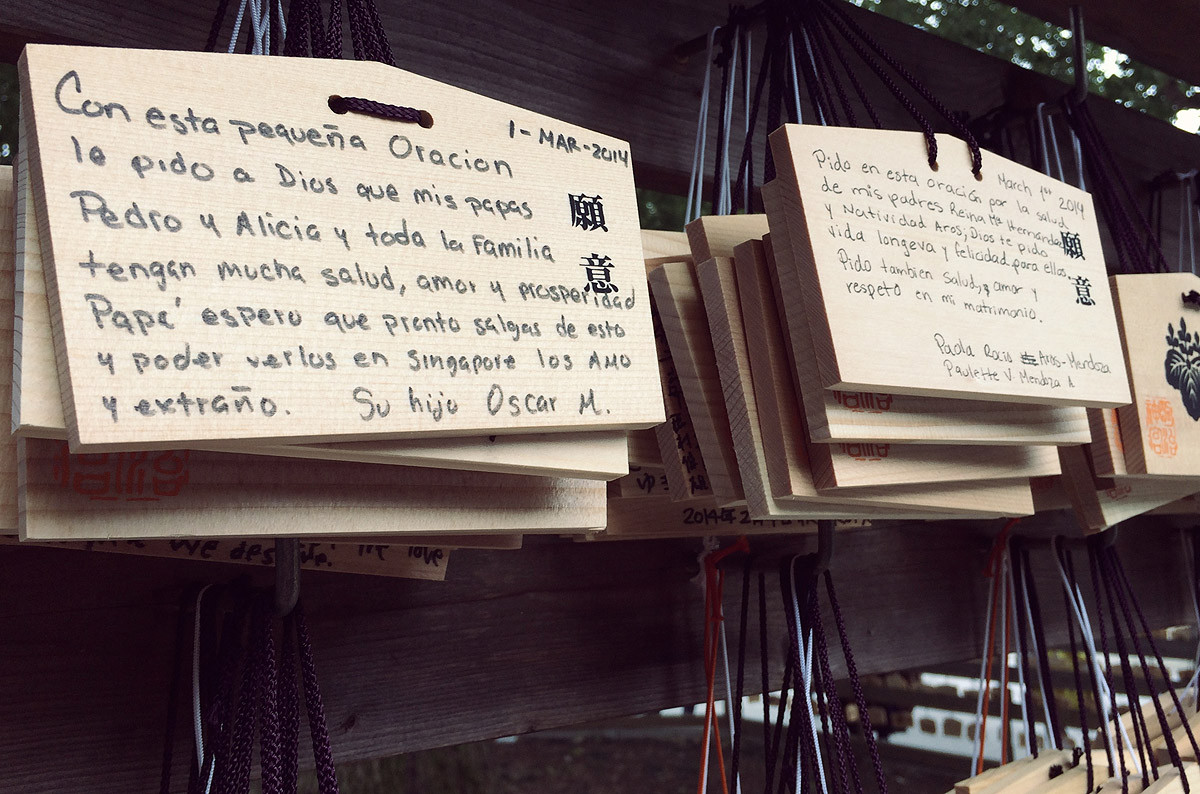 Con esta pequeña Oracion
1-MAR-2014
le pido a Dios que mis papas
Pedro y Alicia y toda la Familia
tengan mucha salud, amor y prosperidad
Papá espero que pronto salgas de esto
y poder verlos en Singapore los AMO
y extraño. Su hijo Oscar M.
願意
Pido en esta oración por la salud
March 1st 2014
de mis padres Reina Ma Hernández
y Natividad Aros; Dios te pido
vida longeva y felicidad para ellos.
Pido tambien salud, amor y
respeto en mi matrimonio.
Paola Rocio Aros-Mendoza
Paulette V. Mendoza A
願意
2014年2月
we love